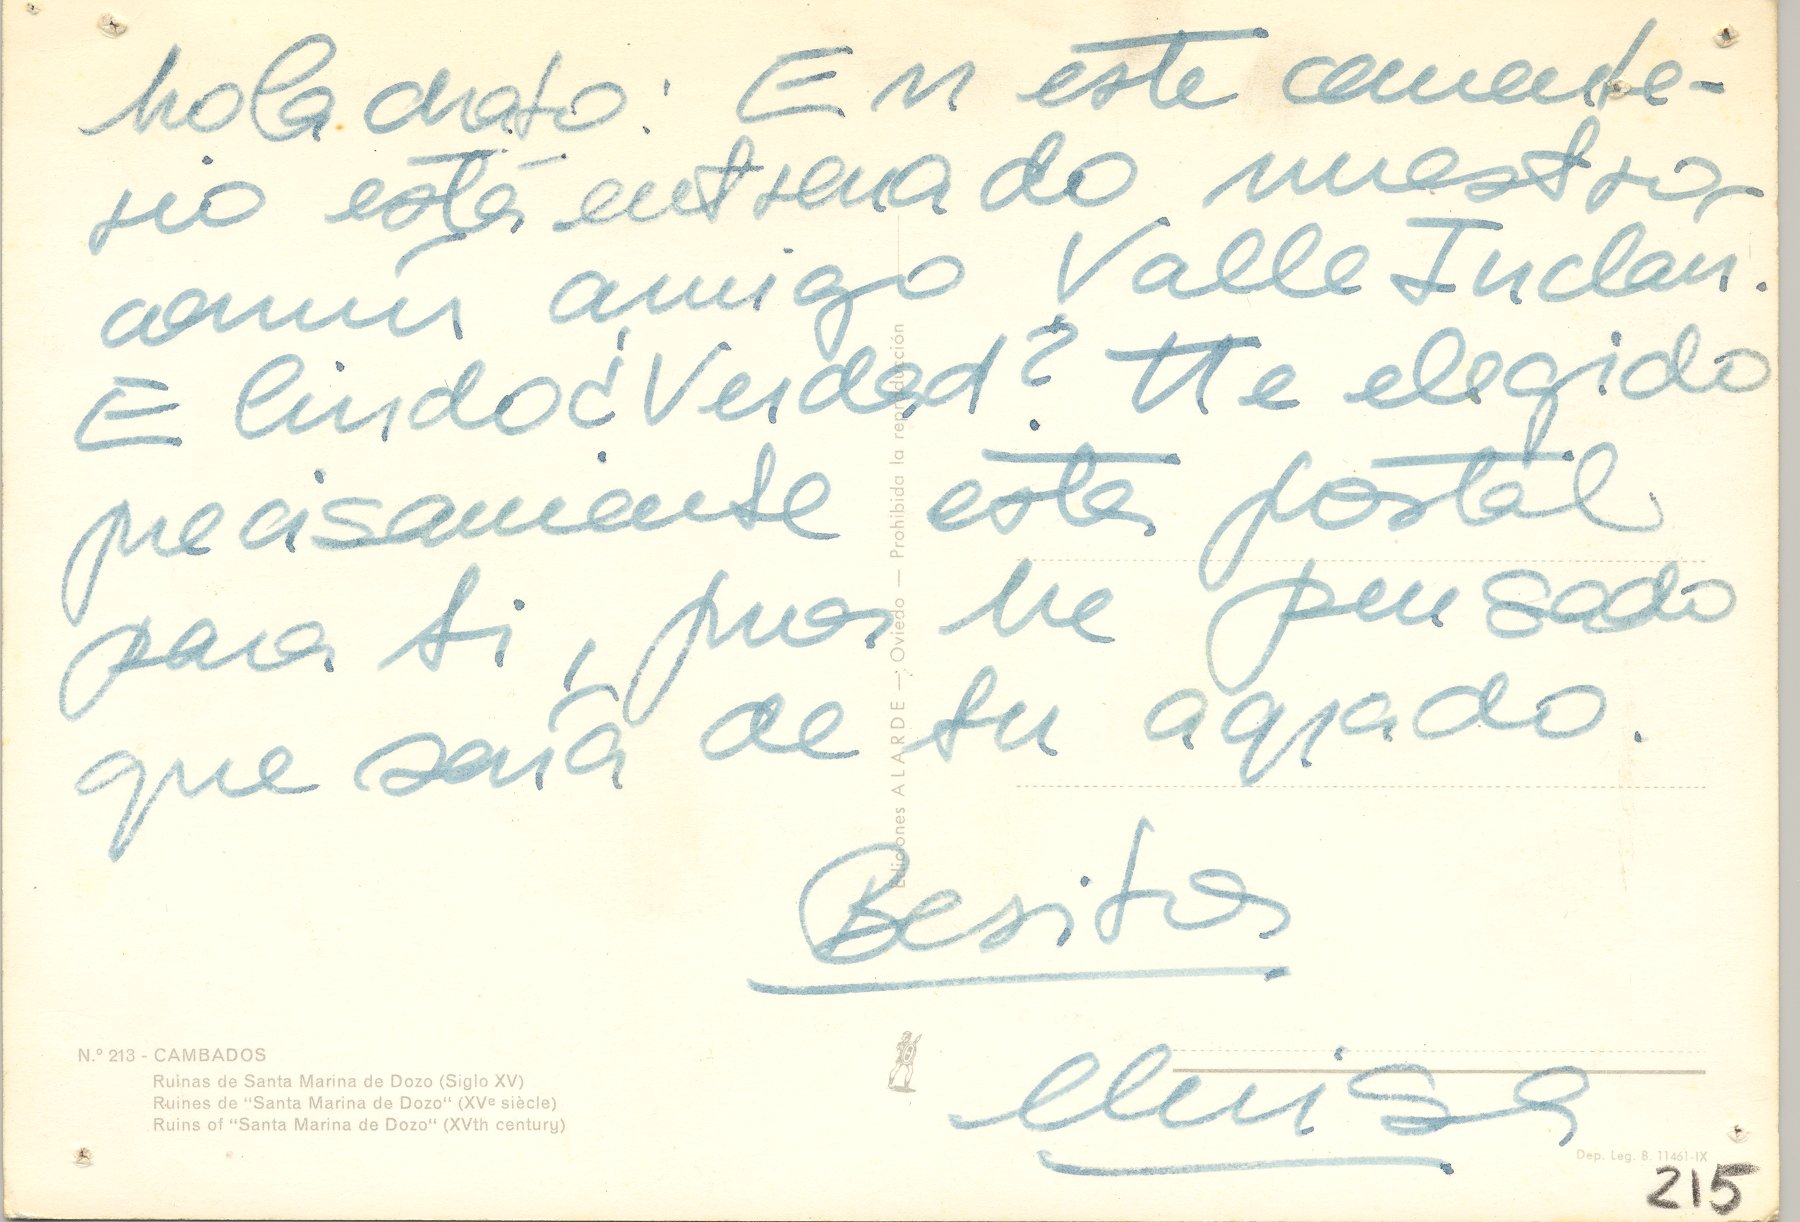 hola chato: En este cemente-
rio está enterrado nuestro
común amigo Valle Inclan.
E lindo ¿Verdad? He elegido
precisamente esta postal
para ti, pues he pensado
que será de tu agrado.
Besitos
Luisa
N.º 213 - CAMBADOS
Ruinas de Santa Marina de Dozo (Siglo XV)
Ruines de "Santa Marina de Dozo" (XVe siècle)
Ruins of "Santa Marina de Dozo" (XVth century)
Ediciones ALARDE — Oviedo — Prohibida la reproducción
Dep. Leg. B. 11461-IX
215